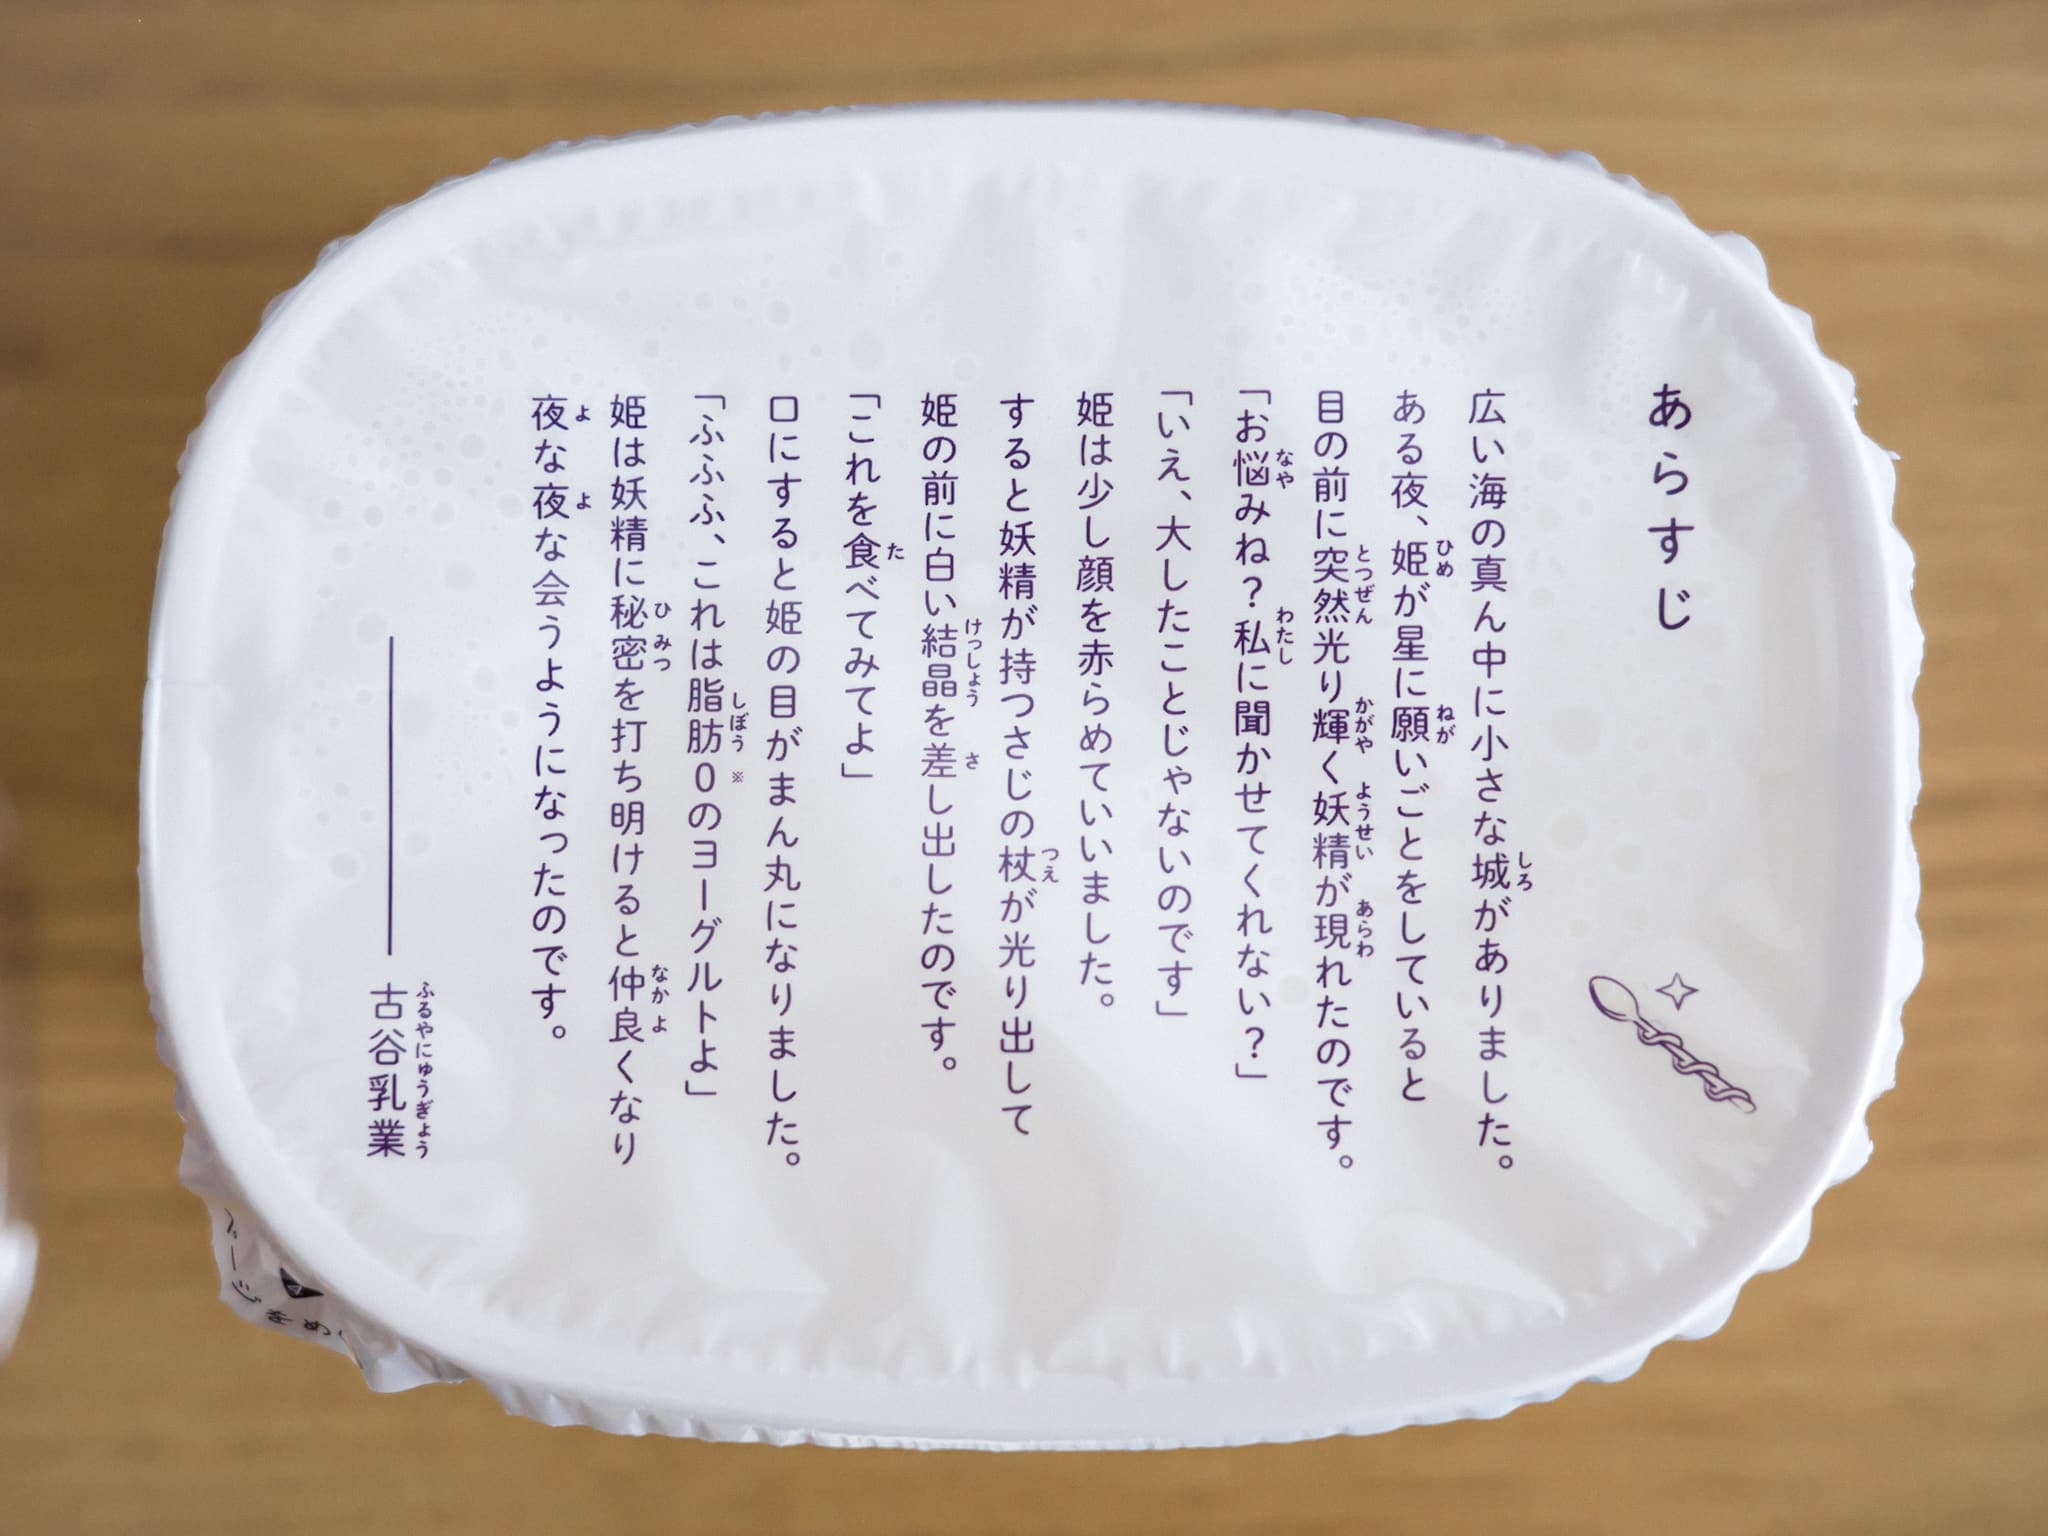 あらすじ
広い海の真ん中に小さな城がありました。
ある夜、姫が星に願いごとをしていると
目の前に突然光り輝く妖精が現れたのです。
「お悩みね?私に聞かせてくれない?」
「いえ、大したことじゃないのです」
姫は少し顔を赤らめていいました。
すると妖精が持つさじの杖が光り出して
姫の前に白い結晶を差し出したのです。
「これを食べてみてよ」
口にすると姫の目がまん丸になりました。
「ふふふ、これは脂肪0※のヨーグルトよ」
姫は妖精に秘密を打ち明けると仲良くなり
夜な夜な会うようになったのです。
――― 古谷乳業
ページをめ